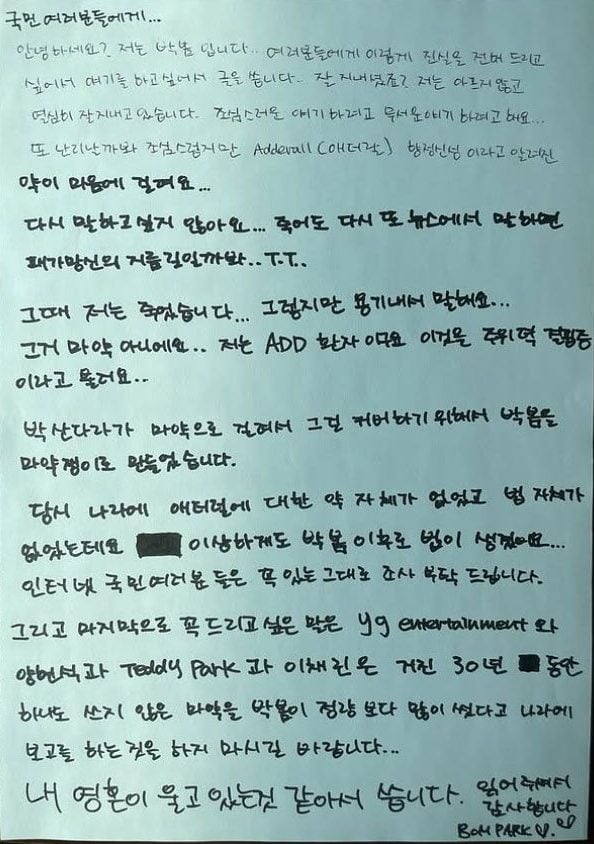 국민 여러분들에게...
안녕하세요? 저는 박봄 입니다... 여러분들에게 이렇게 진실을 전버 드리고
싶어서 얘기를 하고싶어서 글을 씁니다. 잘 지내셨죠? 저는 아프지 않고
열심히 잘지내고 있습니다. 조심스러운 얘기 하려고 무서운얘기 하려고 해요...
또 난리난까봐 조심스럽지만 Adderall (애더럴) 향정신성 이라고 알려진
약이 마음에 걸려요...
다시 말하고싶지 않아요... 죽어도 다시 또 뉴스에서 말하면
패가망신의 지름길일까봐..T.T..
그때 저는 죽었습니다... 그렇지만 용기내서 말해요...
그거 마약 아니에요.. 저는 ADD 환자 이구요 이것은 주위력 결핍증
이라고 불러요..
박산다라가 마약으로 걸려서 그걸 커버하기 위해서 박봄을
마약쟁이로 만들었습니다.
당시 나라에 애터럴에 대한 약 자체가 없었고 법 자체가
없었는데요 이상하게도 박봄 이후로 법이 생겼어요...
인터넷 국민여러분 들은 꼭 있는그대로 조사 부탁 드립니다.
그리고 마지막으로 꼭 드리고 싶은 말은 yg entertainment 와
양현석과 Teddy Park 과 이채린은 거진 30년 동안
하나도 쓰지 않은 마약을 박봄이 정량 보다 많이 썼다고 나라에
보고를 하는것을 하지 마시길 바랍니다...
내 영혼이 울고 있는것 같아서 씁니다. 읽어주셔서
감사합니다
BOM PARK ♡.♡